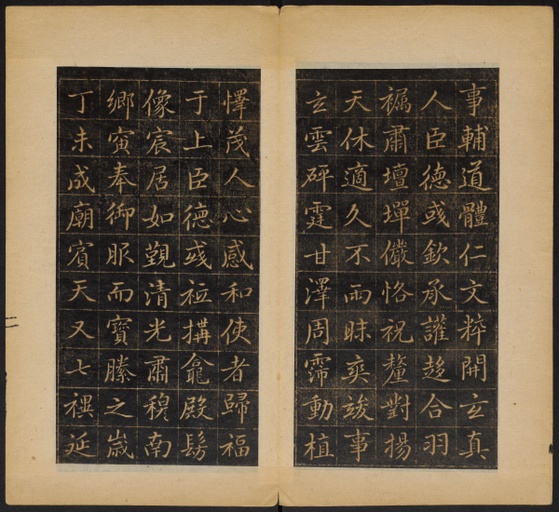 事輔道體仁文粹開玄真
人臣德彧欽承讙趍合羽
肅壇墠儼恪祝釐對揚
天休適久不雨昧爽竣事
玄雲砰霆甘澤周霈動植
懌茂人心感和使者歸福
于上臣德彧衹搆龕殿髣
像宸居如覲清光肅穆南
鄉寅奉御服而寶縢之歲
丁未成廟賓天又七禩延